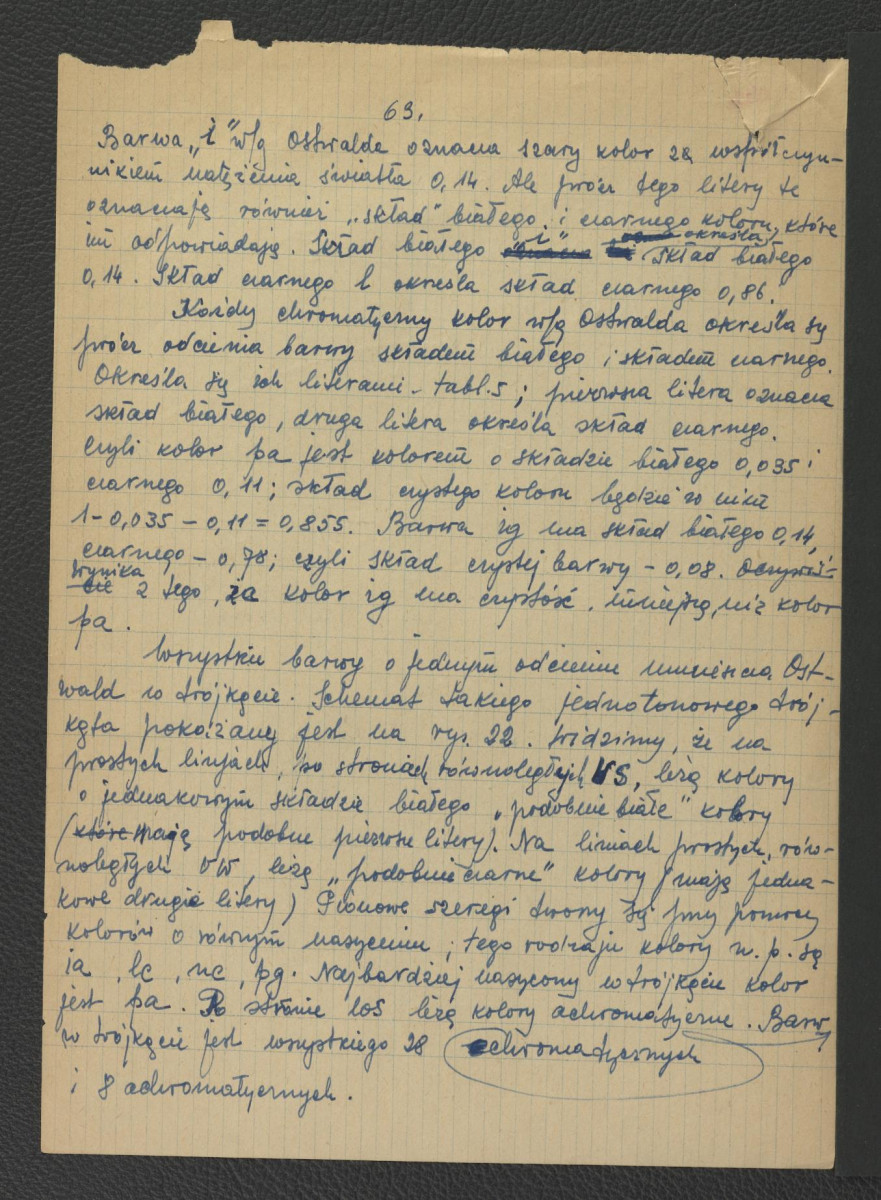 63.
Barwa „i" w/g Ostwalda oznacza szary kolor zą współczyn-
nikiem natężenia światła 0,14. Ale prócz tego litery te
oznaczają również „skład" białego i czarnego koloru, które
im odpowiadają. Skład białego „i" określa skład białego
0,14. Skład czarnego l określa skład czarnego 0,86.
Każdy chromatyczny kolor w/g Ostwalda określa się
prócz odcienia barwy składem białego i składem czarnego.
Określa się ich literami - tabl. 5; pierwsza litera oznacza
skład białego, druga litera określa skład czarnego.
Czyli kolor pa jest kolorem o składzie białego 0,035 i
czarnego 0,11; skład czystego koloru będzie w nim
1 - 0,035 - 0,11 = 0,855. Barwa ig ma skład białego 0,14,
czarnego - 0,78; czyli skład czystej barwy - 0,08. Oczywiś-
cie wynika z tego, że kolor ig ma czystość mniejszą, niż kolor
pa.
Wszystkie barwy o jednym odcieniu umieszcza Ost-
wald w trójkącie. Schemat takiego jednotonowego trój-
kąta pokazany jest na rys. 22. Widzimy, że na
prostych linjach, po stronach równoległych WS, leżą kolory
o jednakowym składzie białego „podobnie białe" kolory
(które mają podobne pierwsze litery). Na liniach prostych, rów-
noległych VW, leżą „podobnie czarne" kolory (mają jedna-
kowe drugie litery) Pionowe szeregi tworzy się przy pomocy
kolorów o równym nasyceniu; tego rodzaju kolory n.p. są
ia, lc, nc, pg. Najbardziej nasycony w trójkącie kolor
jest pa. Po stronie WS leżą kolory achromatyczne. Barw
w trójkącie jest wszystkiego 28 chromatycznych
i 8 achromatycznych.